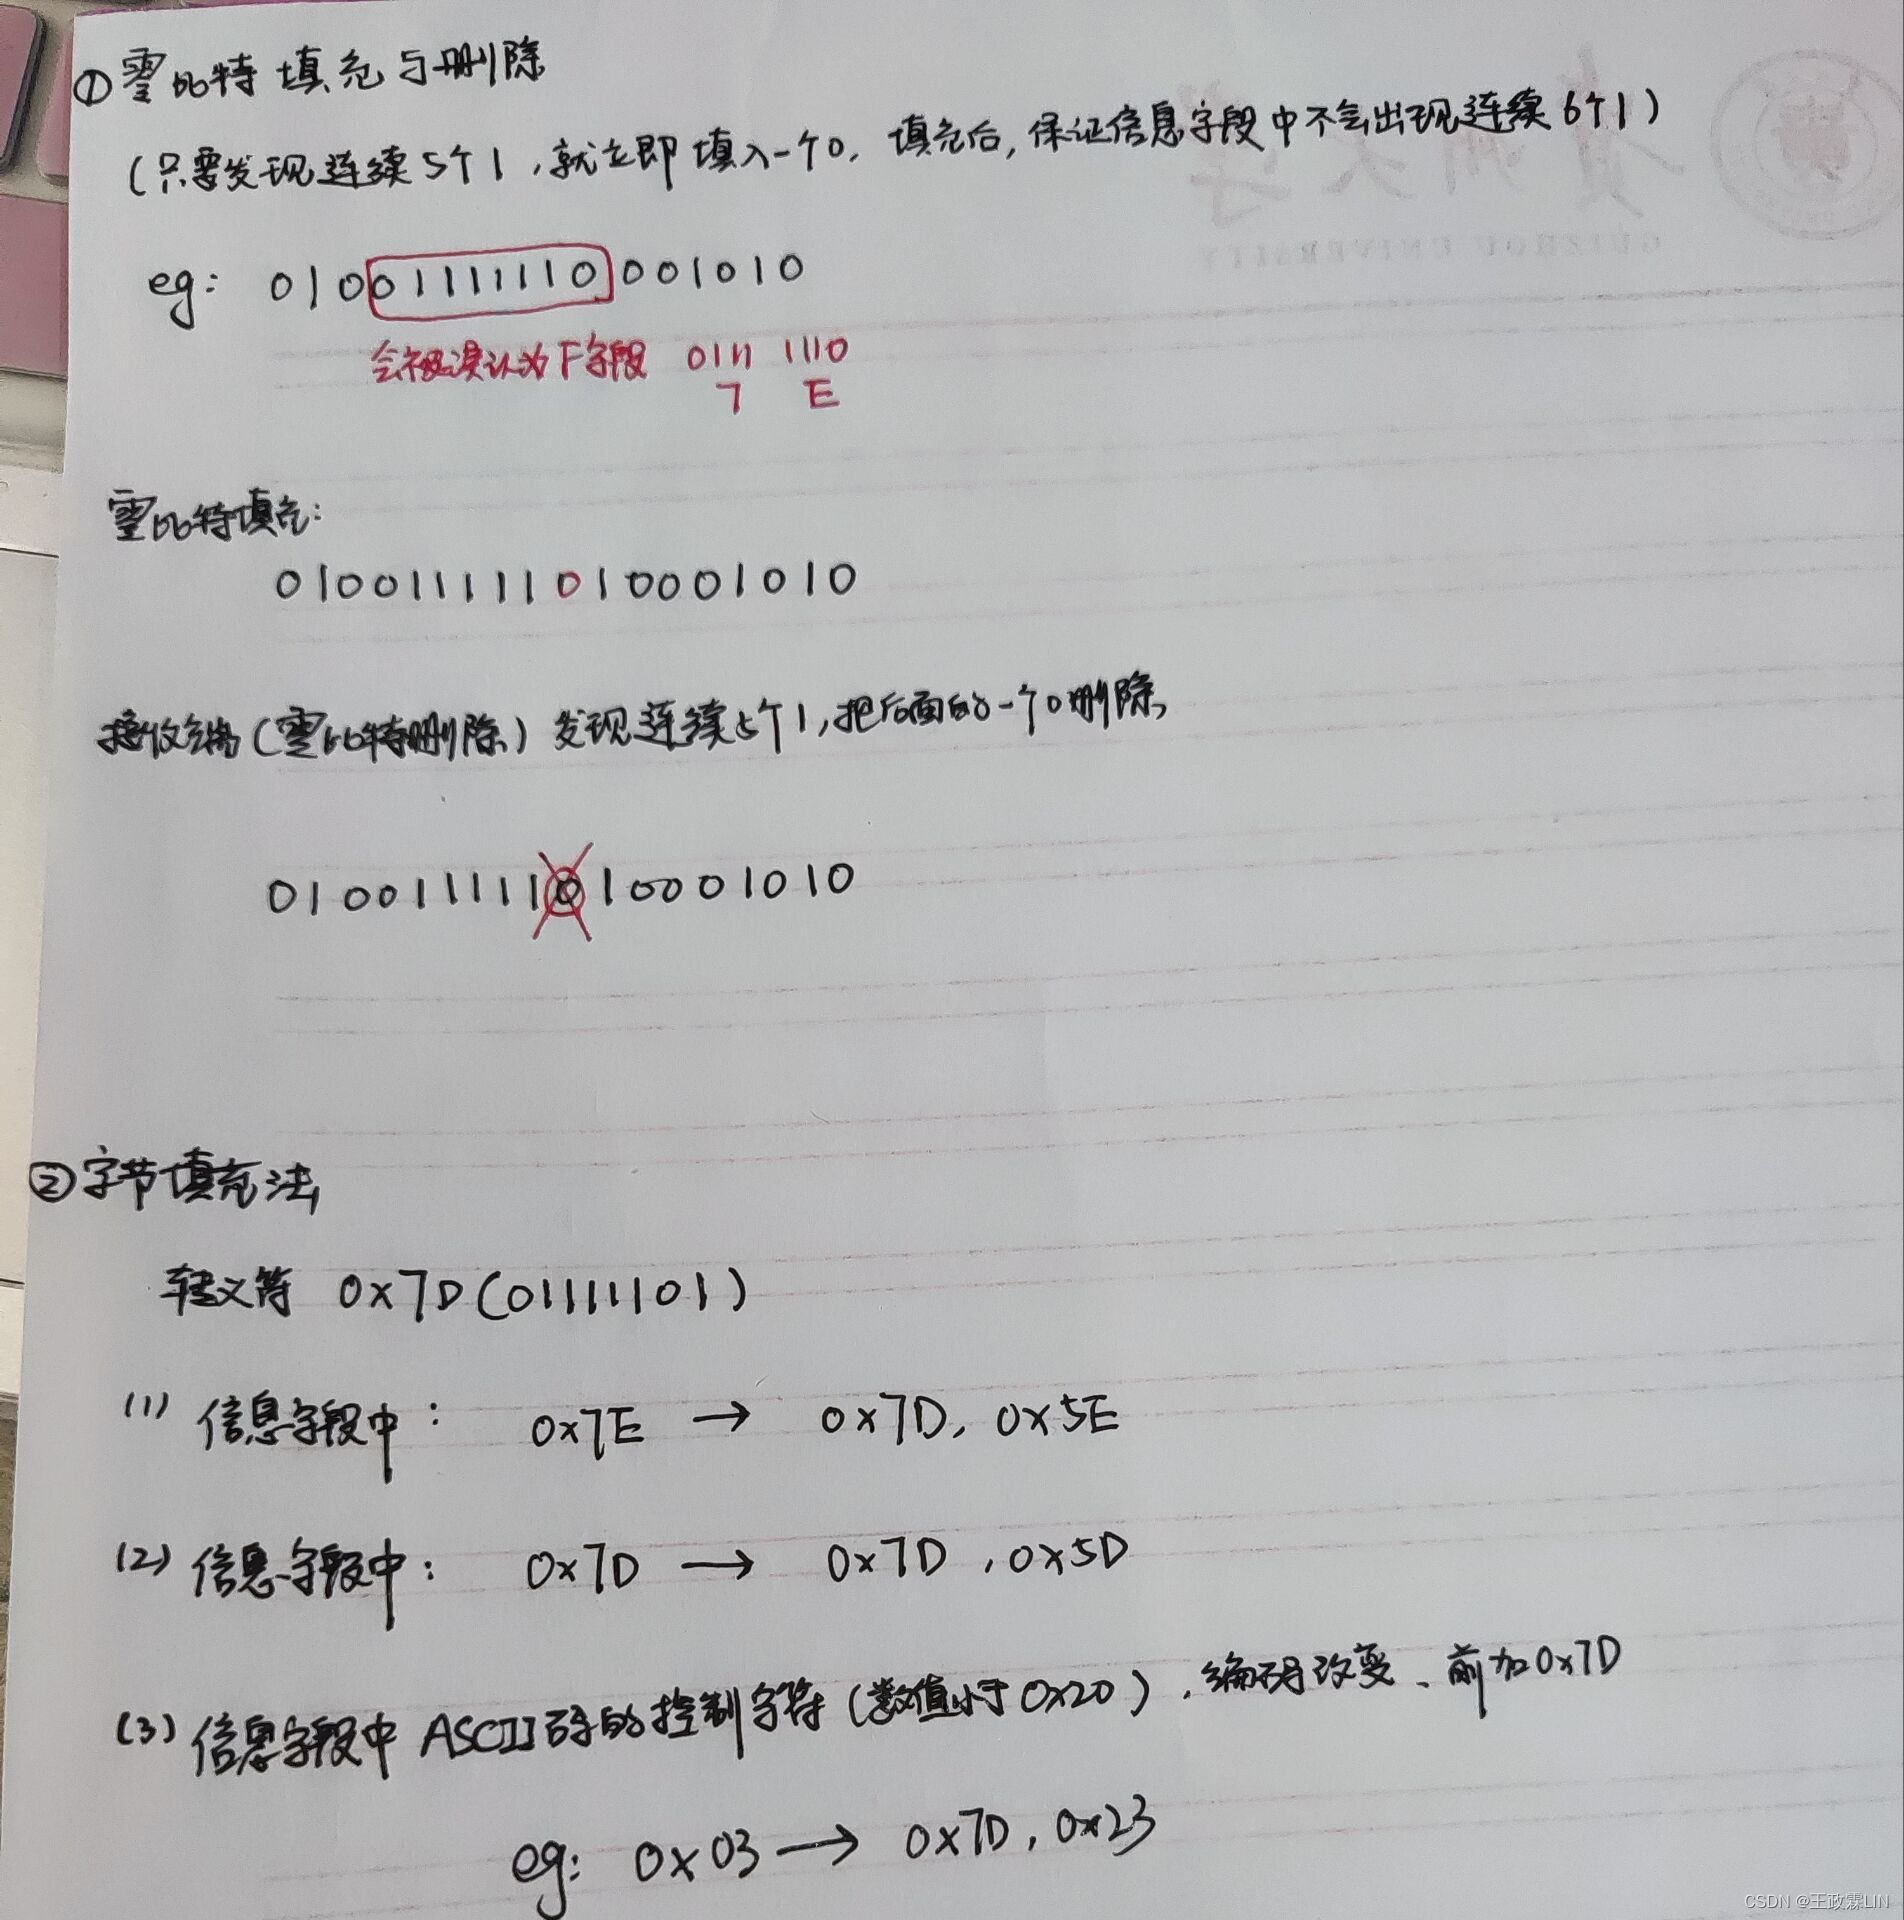 ①零比特填充与删除
(只要发现连续5个1,就立即填入一个0. 填充后,保证信息字段中不会出现连续6个1)
贵州大学
GUIZHOU UNIVERSITY
eg: 01001111110001010
会被误认为F字段 0111 1110
7 E
零比特填充:
010011111010001010
接收端(零比特删除)发现连续5个1,把后面的一个0删除,
010011111010001010
②字节填充法
转义符 0x7D(01111101)
(1) 信息字段中: 0x7E → 0x7D, 0x5E
(2) 信息字段中: 0x7D → 0x7D, 0x5D
(3) 信息字段中ASCII码的控制字符(数值小于0x20),编码改变、前加0x7D
eg: 0x03 → 0x7D, 0x23
CSDN @王政霖LIN